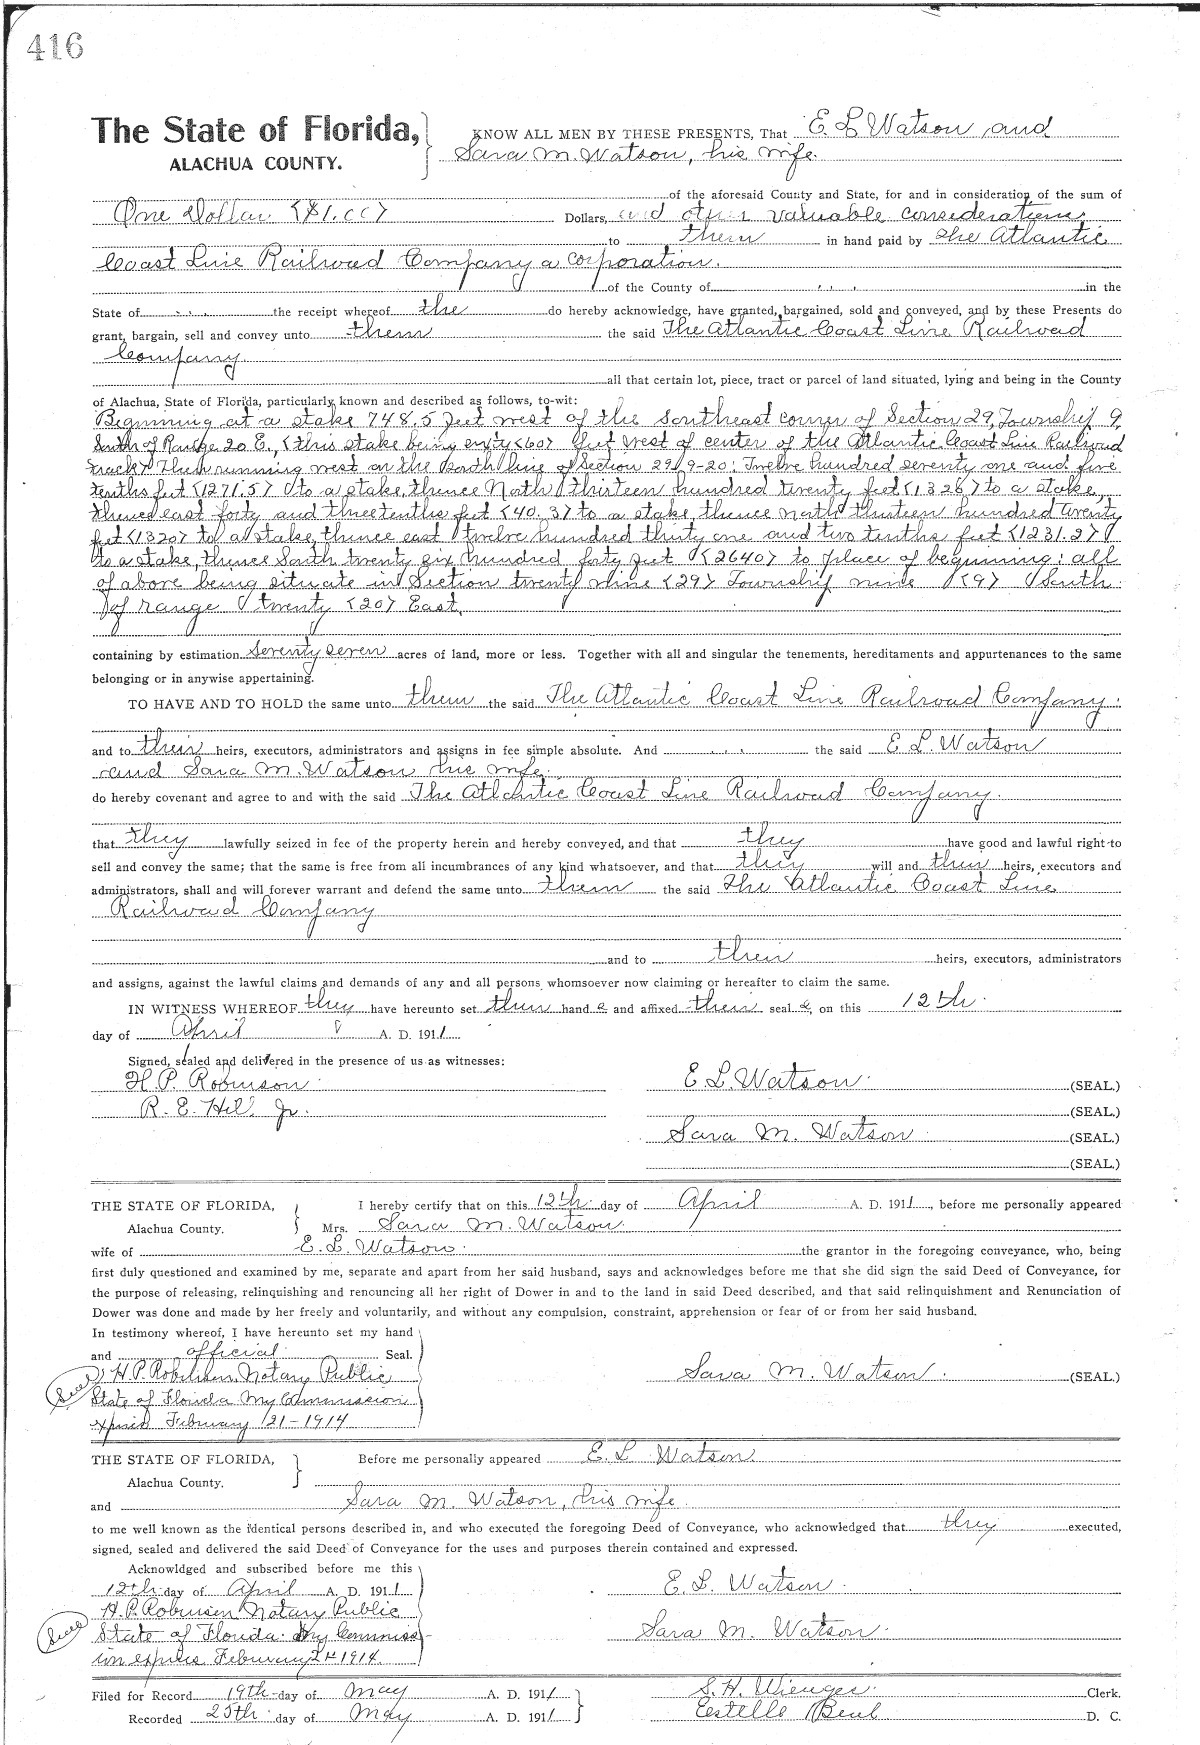 416
The State of Florida, KNOW ALL MEN BY THESE PRESENTS, That E L Watson and
ALACHUA COUNTY. Sara M. Watson, his wife.
of the aforesaid County and State, for and in consideration of the sum of
One Dollar. ($1.00) Dollars, and other valuable considerations
to them in hand paid by The Atlantic
Coast Line Railroad Company a corporation.
of the County of in the
State of the receipt whereof the do hereby acknowledge, have granted, bargained, sold and conveyed, and by these Presents do
grant, bargain, sell and convey unto them the said The Atlantic Coast Line Railroad
Company
all that certain lot, piece, tract or parcel of land situated, lying and being in the County
of Alachua, State of Florida, particularly known and described as follows, to-wit:
Beginning at a stake 748.5 feet west of the southeast corner of Section 29, Township 9
South of Range 20 E., (this stake being (60) feet West of center of the Atlantic Coast Line Railroad
track) Then running west on the South line of Section 29 9-20: Twelve hundred seventy one and five
tenths feet (1271.5) to a stake, thence North thirteen hundred twenty feet (1320) to a stake,
thence east forty and three tenths feet (40.3) to a stake, thence north thirteen hundred twenty
feet (1320) to a stake, thence east twelve hundred thirty one and two tenths feet (1231.2)
to a stake, thence South twenty six hundred forty feet (2640) to place of beginning; all
of above being situate in Section twenty nine (29) Township nine (9) South
of range twenty (20) East.
containing by estimation seventy seven acres of land, more or less. Together with all and singular the tenements, hereditaments and appurtenances to the same
belonging or in anywise appertaining.
TO HAVE AND TO HOLD the same unto them the said The Atlantic Coast Line Railroad Company.
and to their heirs, executors, administrators and assigns in fee simple absolute. And the said E L. Watson
and Sara M. Watson his wife.
do hereby covenant and agree to and with the said The Atlantic Coast Line Railroad Company.
that they lawfully seized in fee of the property herein and hereby conveyed, and that they have good and lawful right to
sell and convey the same; that the same is free from all incumbrances of any kind whatsoever, and that they will and their heirs, executors and
administrators, shall and will forever warrant and defend the same unto them the said The Atlantic Coast Line
Railroad Company
and to their heirs, executors, administrators
and assigns, against the lawful claims and demands of any and all persons whomsoever now claiming or hereafter to claim the same.
IN WITNESS WHEREOF they have hereunto set their hand s and affixed their seal s, on this 12th.
day of April A. D. 1911
Signed, sealed and delivered in the presence of us as witnesses:
H. P. Robinson. E L. Watson. (SEAL.)
R. E. Hill Jr. (SEAL.)
Sara M. Watson (SEAL.)
(SEAL.)
THE STATE OF FLORIDA, I hereby certify that on this 12th. day of April A. D. 1911, before me personally appeared
Alachua County. Mrs. Sara M. Watson.
wife of E. L. Watson. the grantor in the foregoing conveyance, who, being
first duly questioned and examined by me, separate and apart from her said husband, says and acknowledges before me that she did sign the said Deed of Conveyance, for
the purpose of releasing, relinquishing and renouncing all her right of Dower in and to the land in said Deed described, and that said relinquishment and Renunciation of
Dower was done and made by her freely and voluntarily, and without any compulsion, constraint, apprehension or fear of or from her said husband.
In testimony whereof, I have hereunto set my hand
and official Seal.
(Seal) H. P. Robinson, Notary Public Sara M. Watson. (SEAL)
State of Florida My Commission
expires February 21-1914
THE STATE OF FLORIDA, Before me personally appeared E. L Watson.
Alachua County.
and Sara M. Watson, his wife.
to me well known as the identical persons described in, and who executed the foregoing Deed of Conveyance, who acknowledged that they executed,
signed, sealed and delivered the said Deed of Conveyance for the uses and purposes therein contained and expressed.
Acknowldged and subscribed before me this
12th day of April A. D. 1911 E. L. Watson.
H. P. Robinson Notary Public
(Seal) State of Florida. My Commiss- Sara M. Watson.
ion expires February 21 1914.
Filed for Record 19th day of May A. D. 1911 S. H. Wienges. Clerk.
Recorded 25th. day of May A. D. 1911 Estelle D. C.